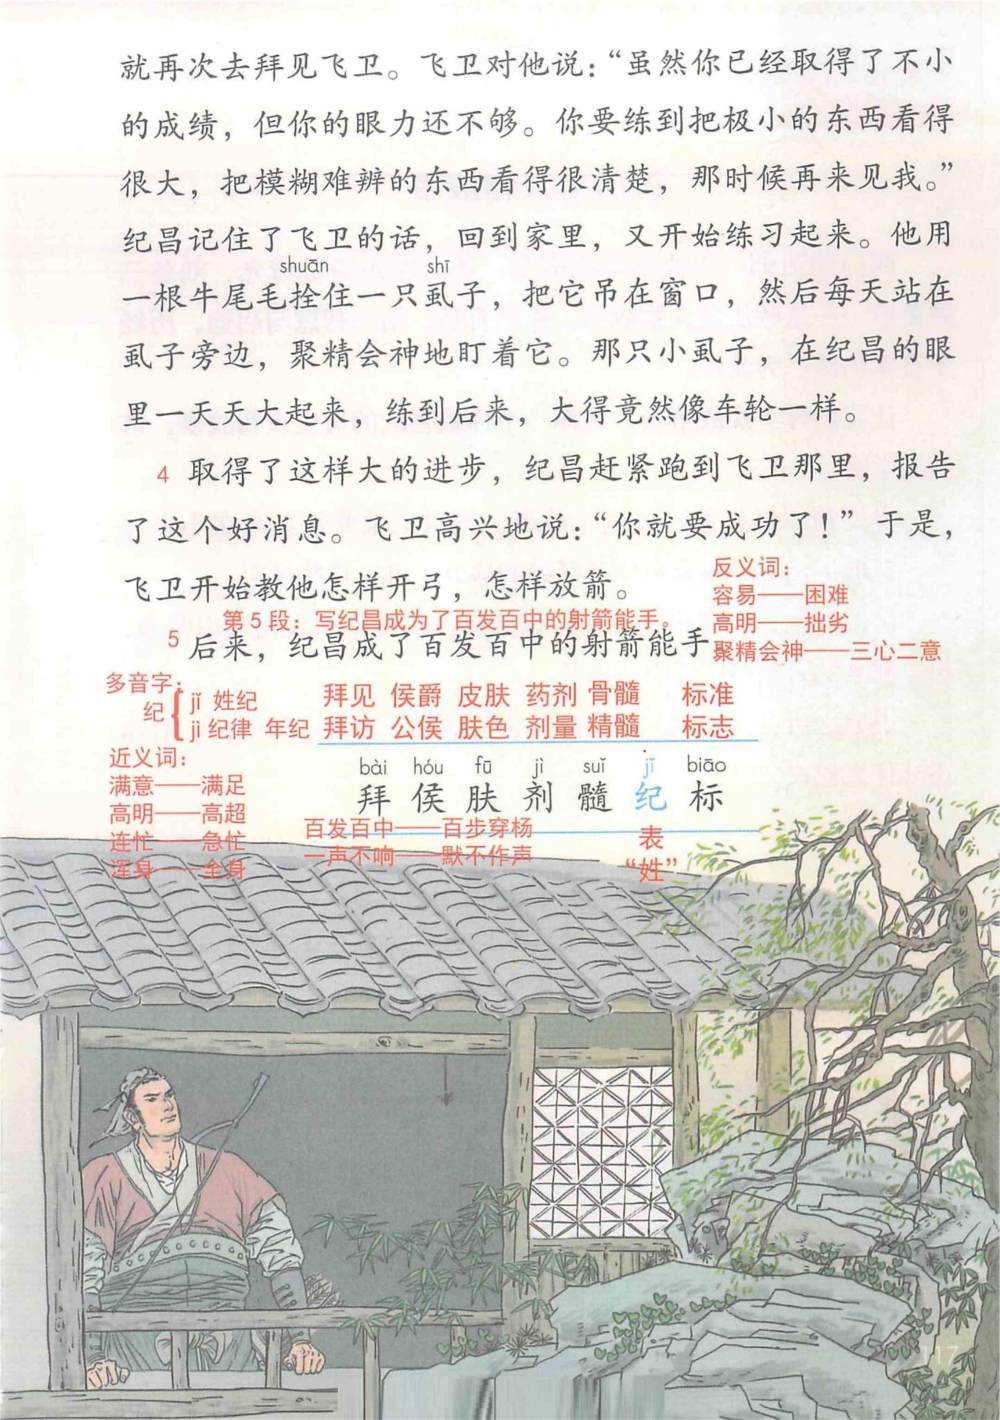 就再次去拜见飞卫。飞卫对他说：“虽然你已经取得了不小
的成绩，但你的眼力还不够。你要练到把极小的东西看得
很大，把模糊难辨的东西看得很清楚，那时候再来见我。”
纪昌记住了飞卫的话，回到家里，又开始练习起来。他用
shuān shī
一根牛尾毛拴住一只虱子，把它吊在窗口，然后每天站在
虱子旁边，聚精会神地盯着它。那只小虱子，在纪昌的眼
里一天天大起来，练到后来，大得竟然像车轮一样。
4 取得了这样大的进步，纪昌赶紧跑到飞卫那里，报告
了这个好消息。飞卫高兴地说：“你就要成功了！”于是，
飞卫开始教他怎样开弓，怎样放箭。
反义词：
容易——困难
高明——拙劣
聚精会神——三心二意
第5段：写纪昌成为了百发百中的射箭能手。
5 后来，纪昌成了百发百中的射箭能手
多音字：
纪
jǐ 姓纪
jì 纪律 年纪
拜见 侯爵 皮肤 药剂 骨髓 标准
拜访 公侯 肤色 剂量 精髓 标志
bài hóu fū jì suǐ jǐ biāo
拜 侯 肤 剂 髓 纪 标
表
“姓”
近义词：
满意——满足
高明——高超
连忙——急忙
浑身——全身
百发百中——百步穿杨
一声不响——默不作声
117